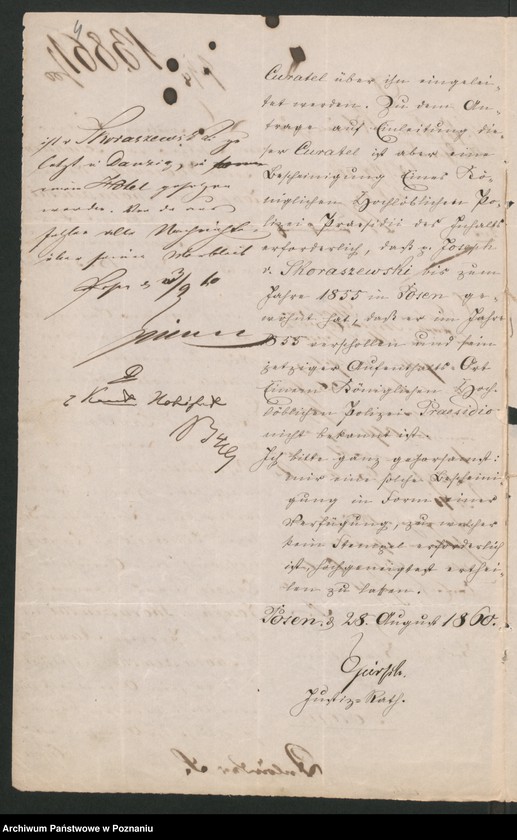 Curatel über ihn eingelei-
tet werden. Zu dem An-
trage auf Einleitung die-
ser Curatel ist aber eine
Bescheinigung Eines Kö-
niglichen Hochlöblichen Po-
lizei Praesidii des Inhalts
erforderlich, daß p. Joseph
v. Skoraszewski bis zum
Jahre 1855 in Posen ge-
wohnt hat, daß er im Jahre
1855 verschollen und sein
jetziger Aufenthalts-Ort
Einem Königlichen Hoch-
löblichen Polizei Praesidio
nicht bekannt ist.
Ich bitte ganz gehorsamst:
mir eine solche Bescheini-
gung in Form einer
Verfügung, zu welcher
kein Stempel erforderlich
ist, hochgeneigtest erthei-
len zu lassen.
Posen d. 28. August 1860.
Justiz-Rath.
ist v. Skoraszewski
letzt in Danzig, in
Hôtel gesehen
worden. Von da aus
fehlen alle Nachrichten
über seinen Verbleib
Posen d 3/9 60
4
Archiwum Państwowe w Poznaniu